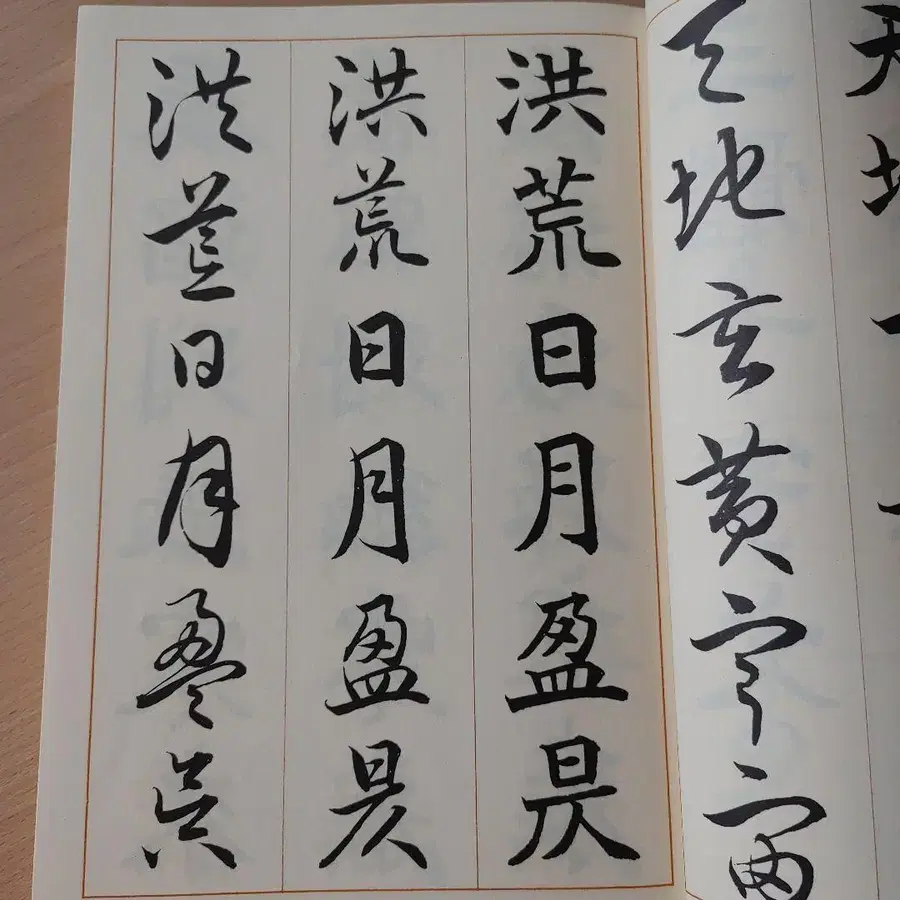 天地玄黄宇宙
洪荒日月盈昃
洪荒日月盈昃
洪荒日月盈昃